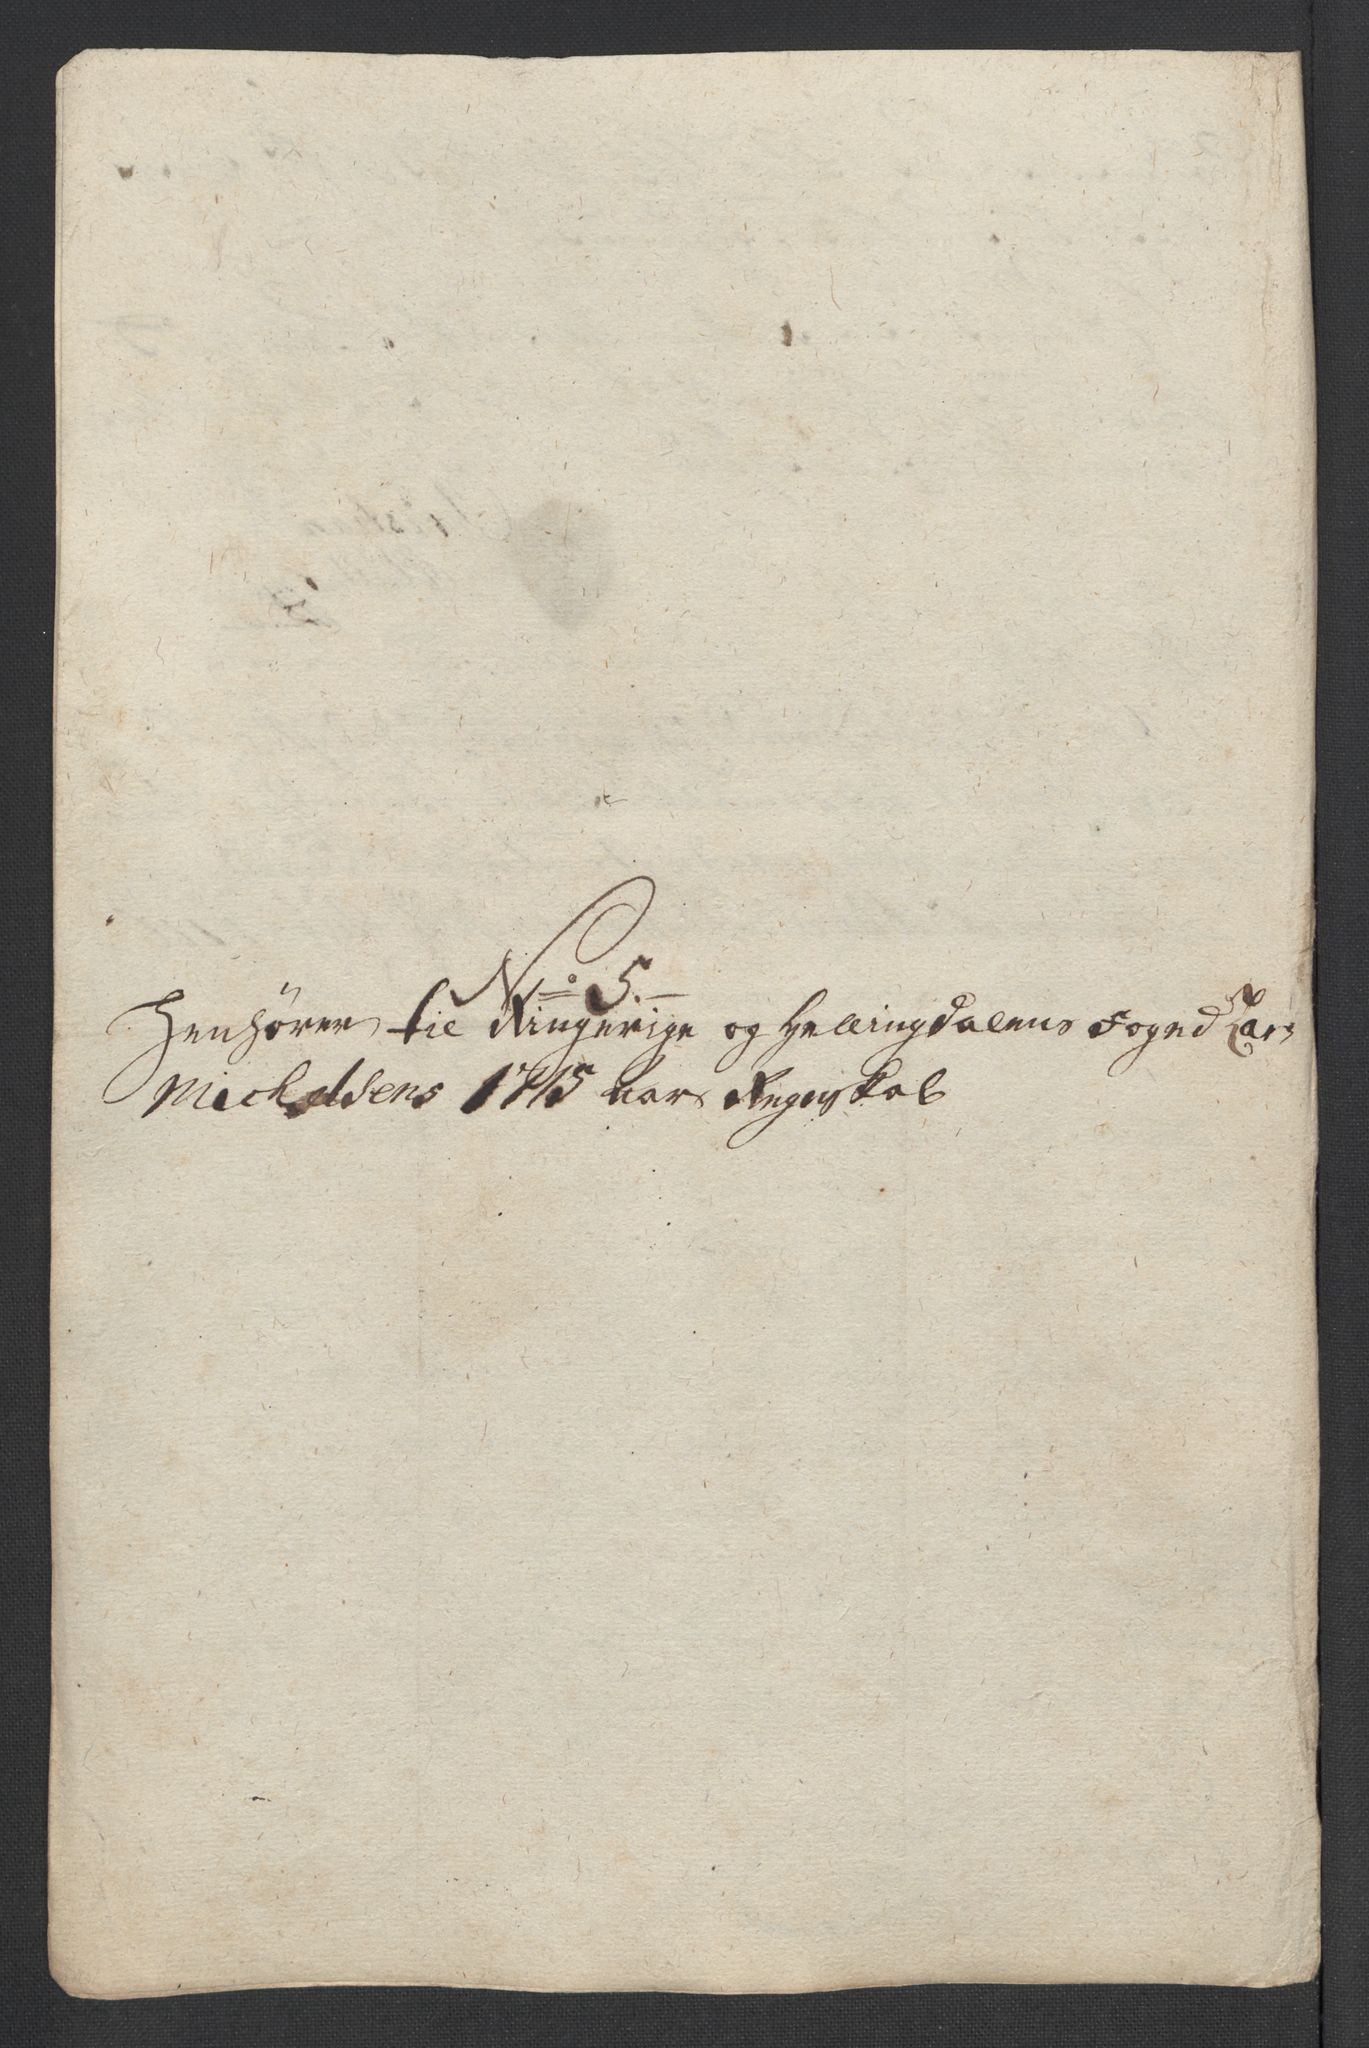 No 5.
Henhörer til Ringerige og Hallingdalens Foged Lars
Michelsens 1715 aars Regenskab